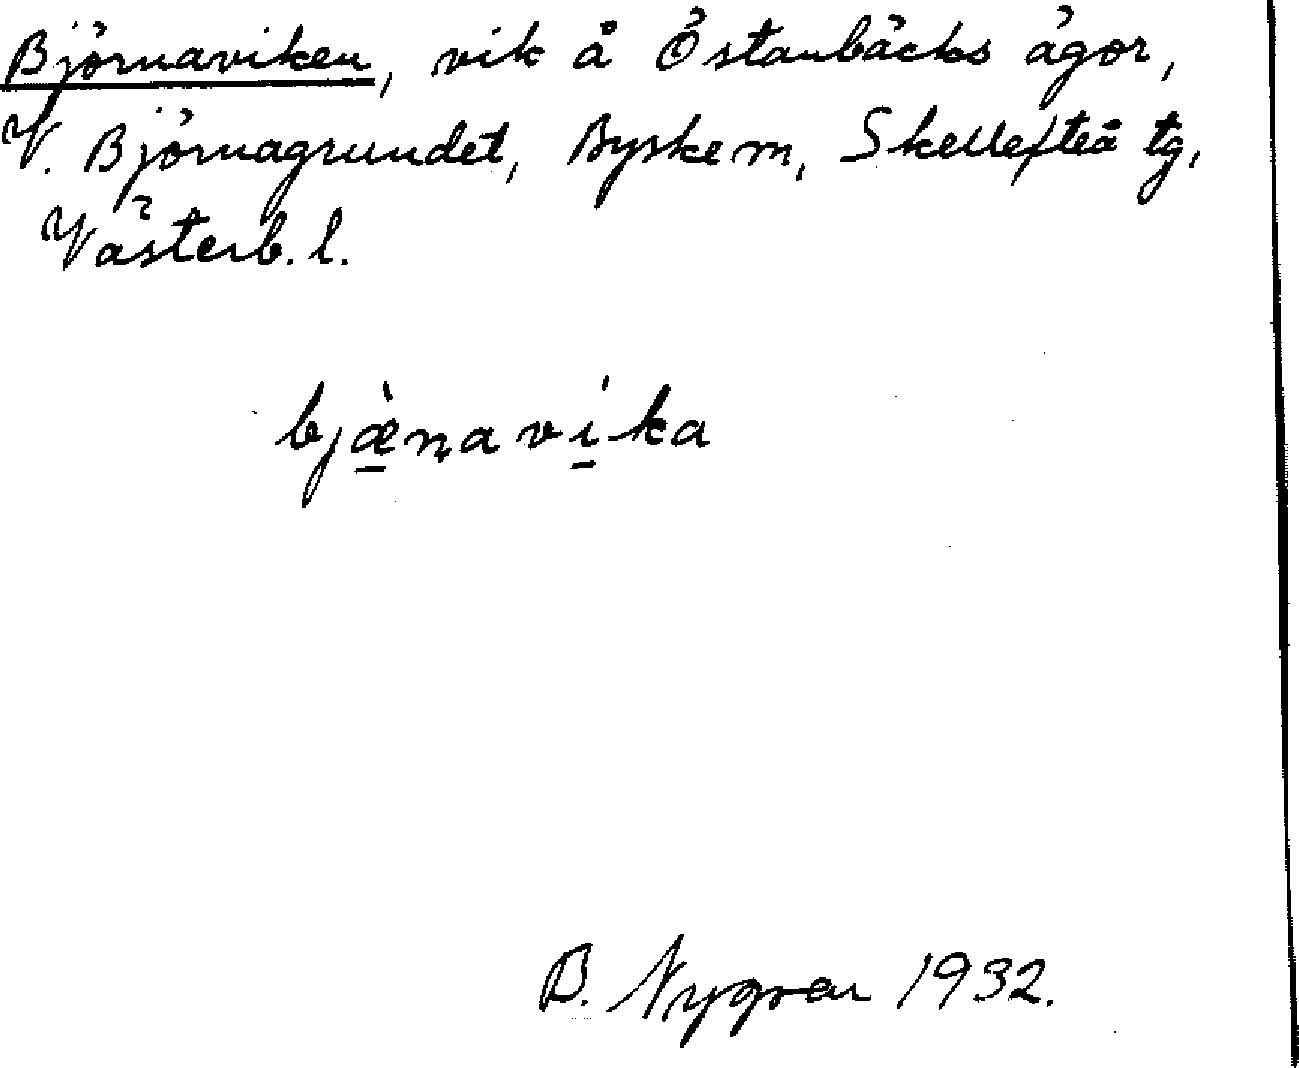 Björnaviken, vik å Östanbäcks ägor,
V. Björnagrundet, Byske m, Skellefteå tg,
Västerb. l.
bjæ̱̀ṇaví̱ka
B. Nygren 1932.